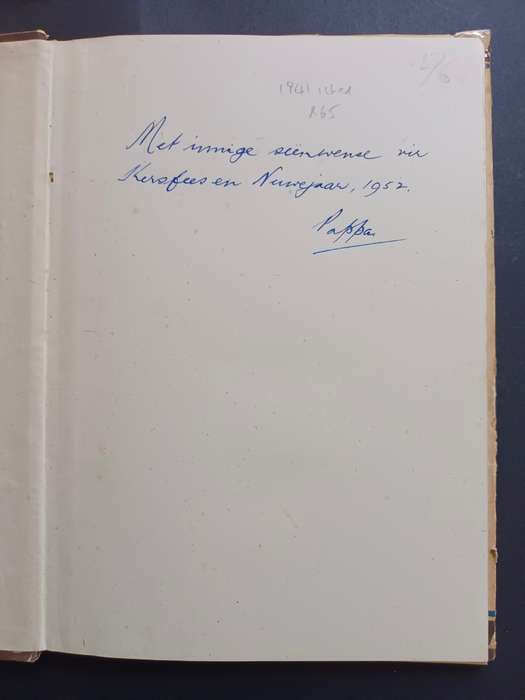 17/6
1941 1st ed
R65
Met innige seënwense vir
Kersfees en Nuwejaar, 1952.
Pappa.